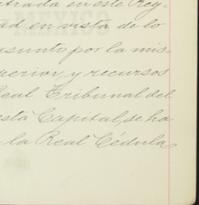 trada en este Reg-
MEXICO
ad en vista de lo
asunto por la mis-
perior, y recursos
Real Tribunal del
esta Capital, se ha
la Real Cédula